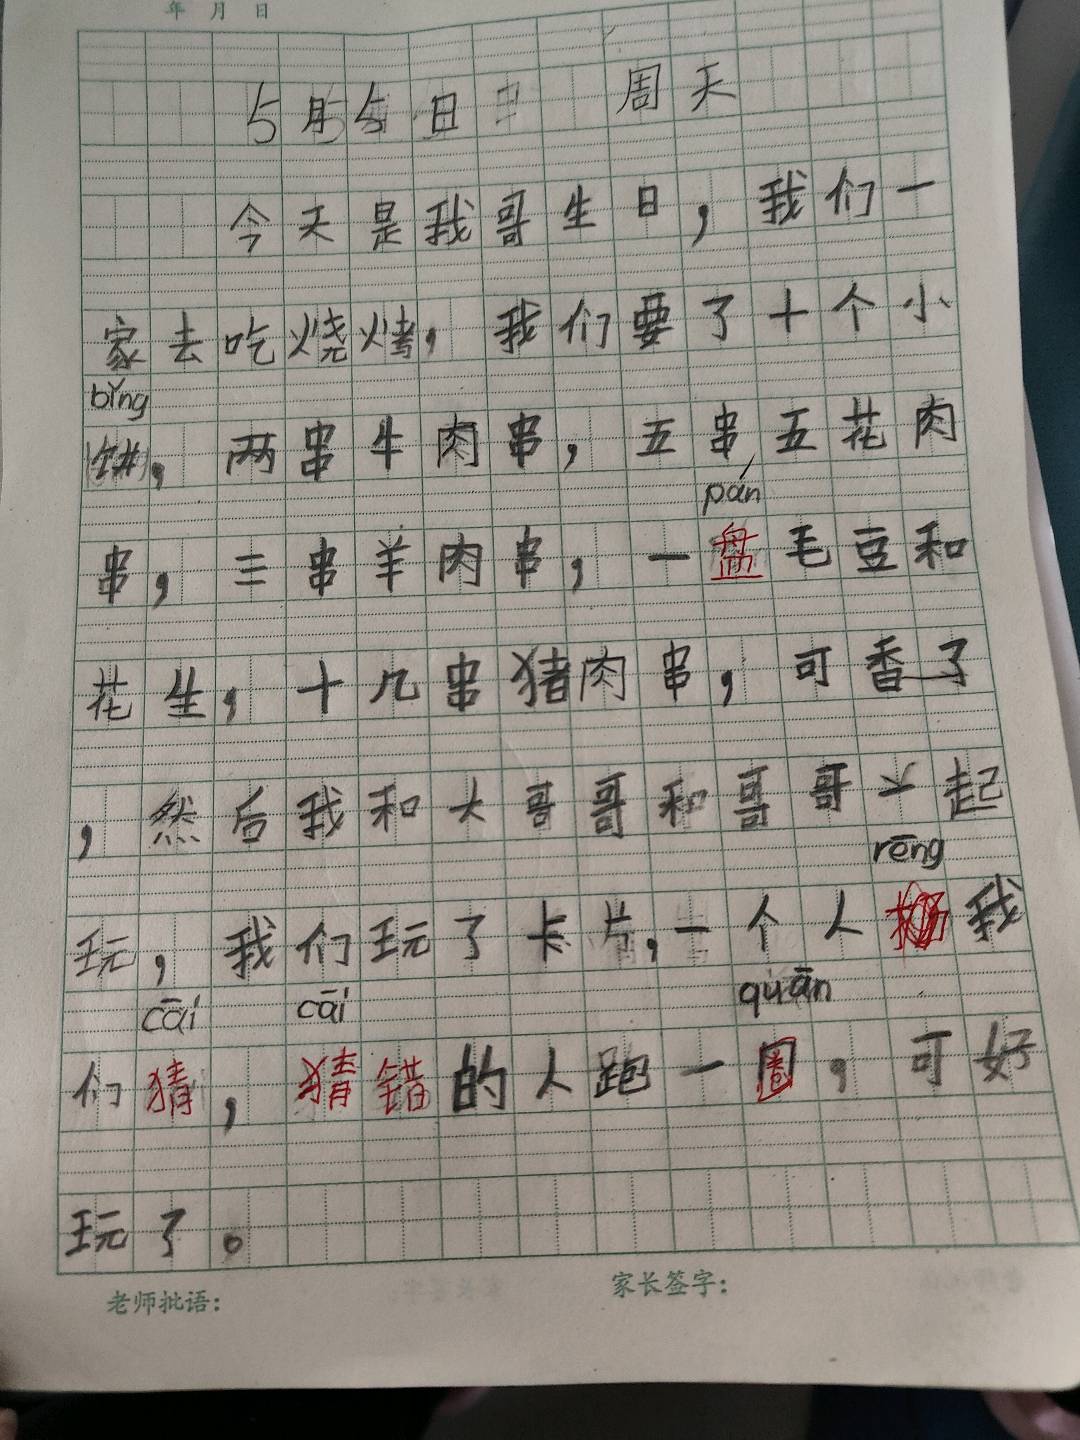 年 月 日
5月5日 周天
今天是我哥生日，我们一
家去吃烧烤，我们要了十个小
bǐng
饼，两串牛肉串，五串五花肉
pán
串，三串羊肉串，一盘毛豆和
花生，十几串猪肉串，可香了
，然后我和大哥哥和哥哥一起
rēng
玩，我们玩了卡片，一个人扔我
cāi cāi quān
们猜，猜错的人跑一圈，可好
玩了。
老师批语： 家长签字：